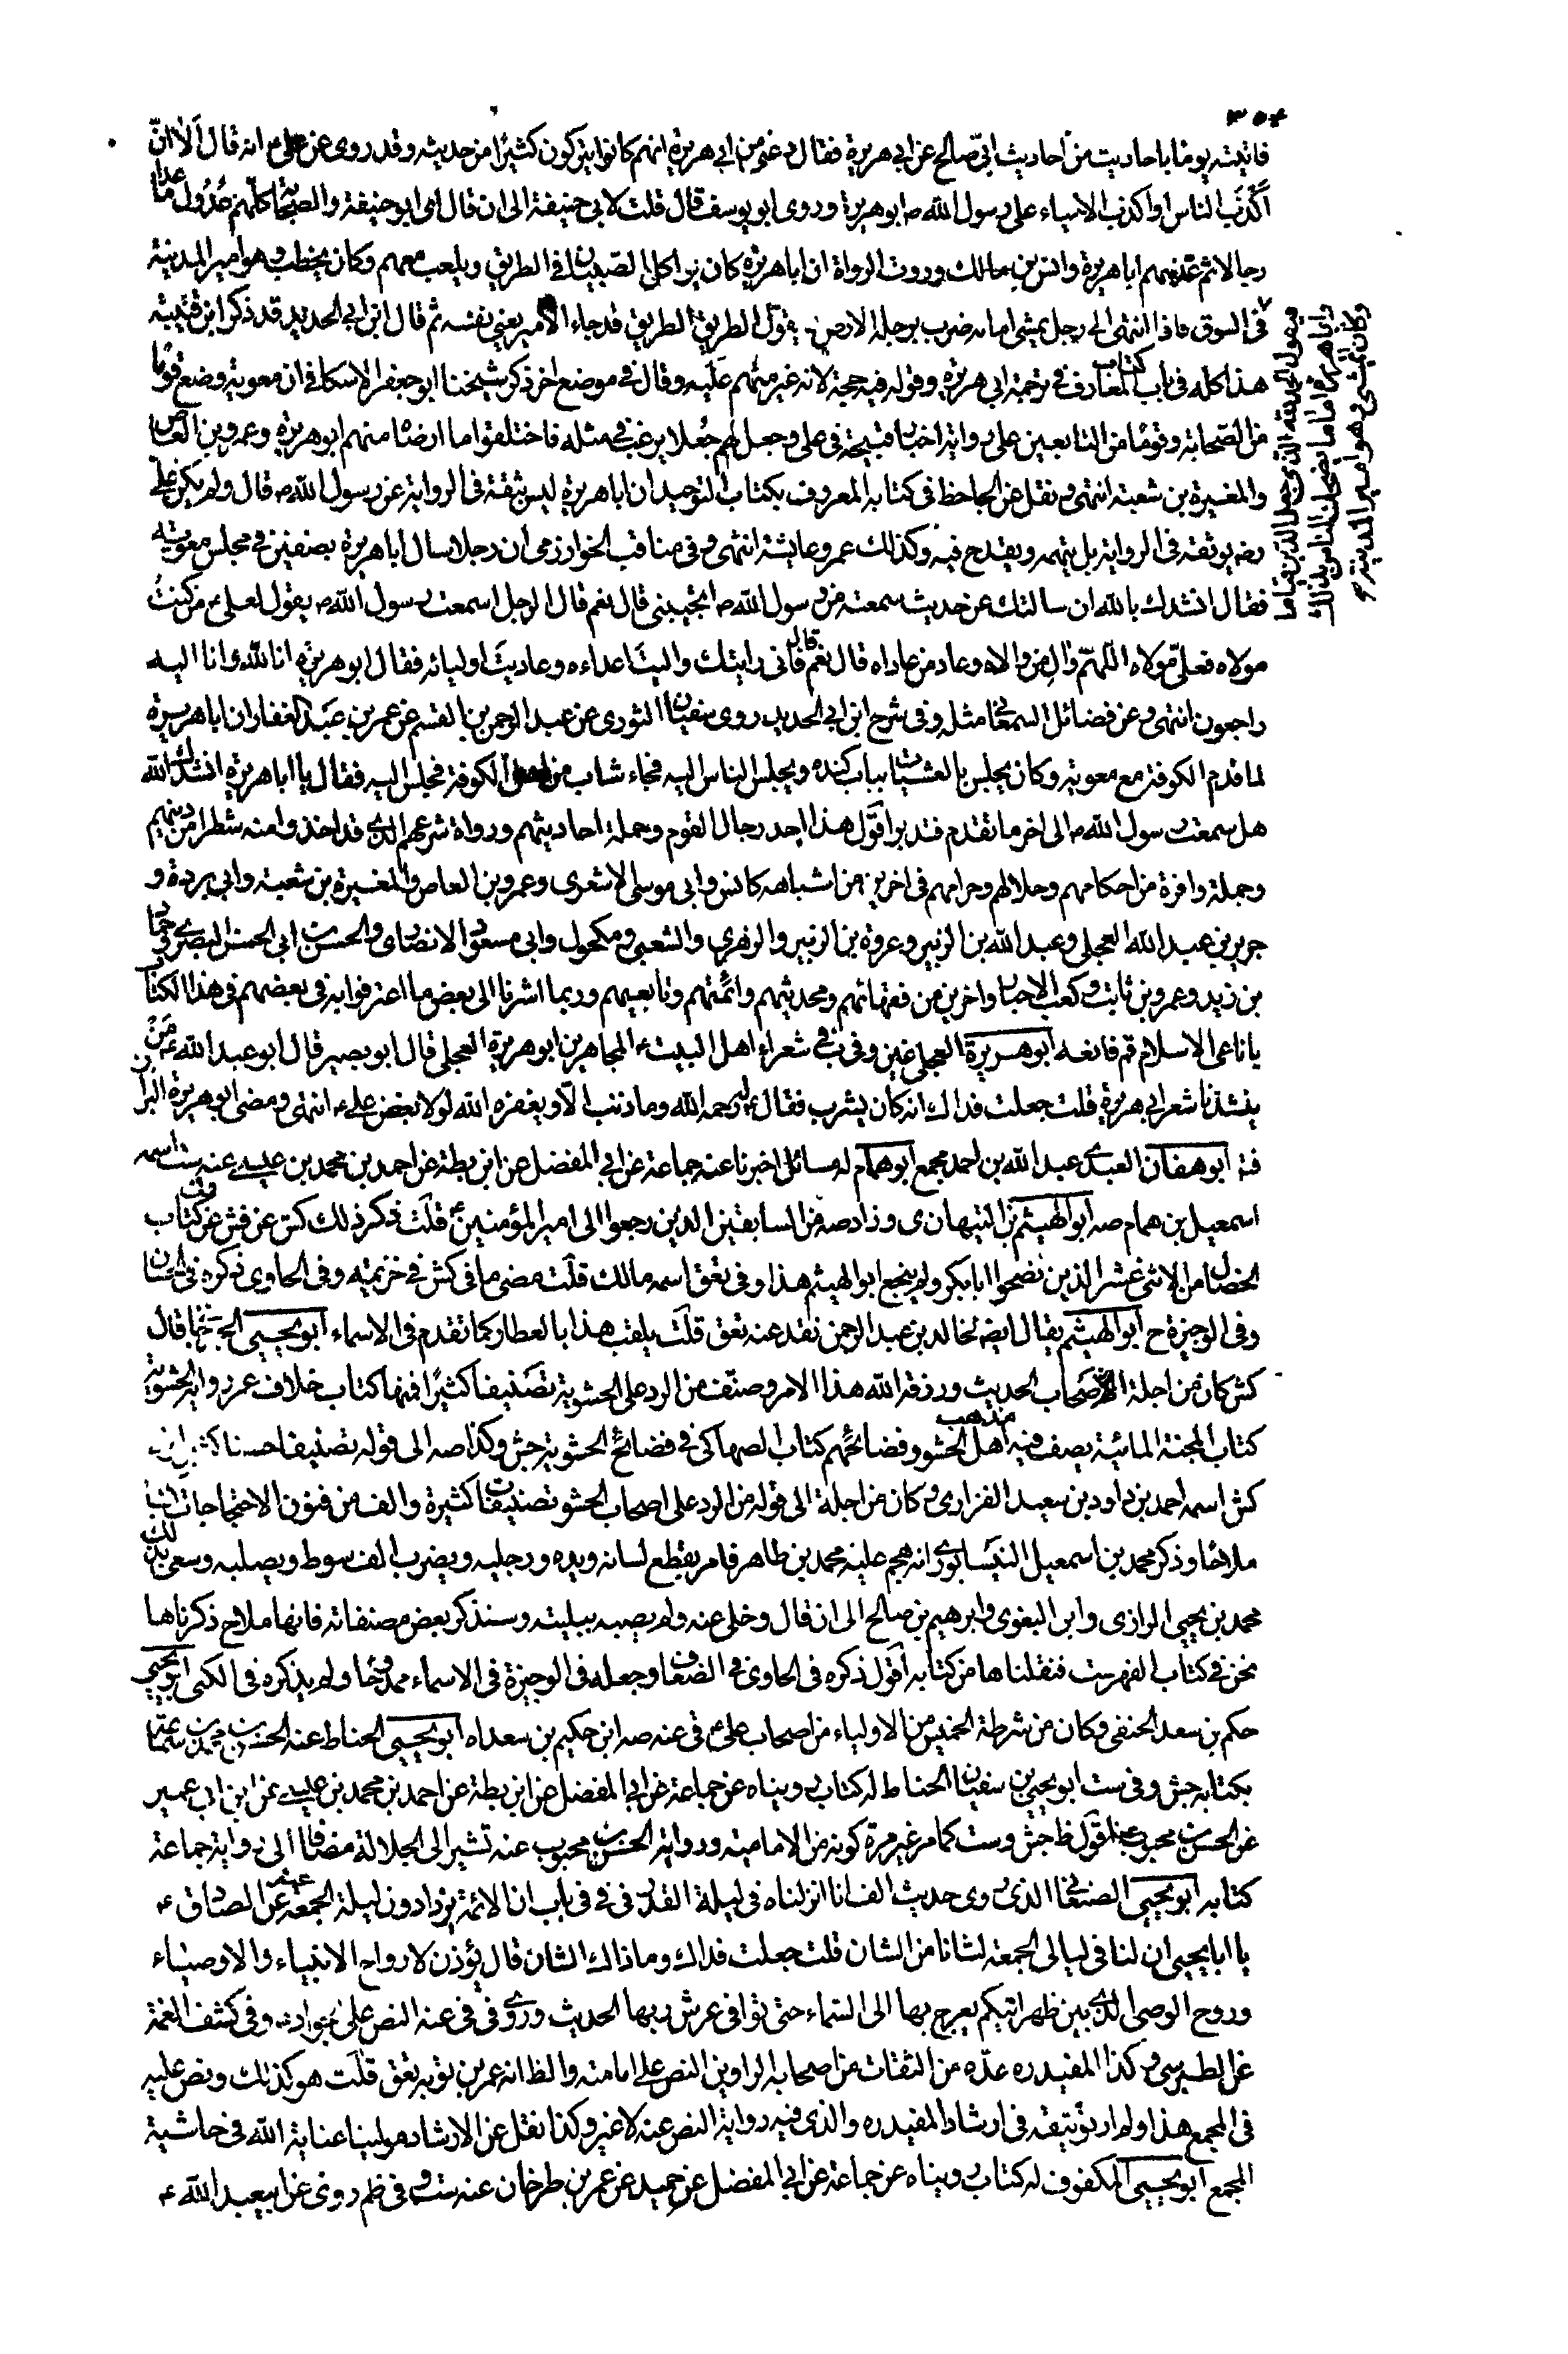 ٣٥٤
فاتيته يوما باحاديث من احاديث ابي صالح عن ابي هريرة فقال دعني من ابي هريرة انهم كانوا يتركون كثيرًا من حديثه وقد روى عن علي ع انه قال ألا انّ
أكذَبَ الناس او اكذب الاحياء على رسول الله ص ابو هريرة وروى ابو يوسف قال قلت لابي حنيفة الى ان قال اى ابو حنيفة والصحابة كلّهم عُدُول ما عدا
رجالا ثم عدّ منهم ابا هريرة وانس بن مالك وروت الرواة ان ابا هريرة كان يواكل الصبيان في الطريق ويلعب معهم وكان يخطب وهو امير المدينة
فيقول الحمد لله الذى جعل الدين قياما
وابا هريرة اماما يضحك الناس بذلك
وكان يمشى وهو امير المدينة
في السوق فاذا انتهى الى رجل يمشى امامه ضرب برجله الارض يقول الطريق الطريق قد جاء الأمير يعني نفسه ثم قال ابن ابي الحديد قد ذكر ابن قتيبة
هذا كله في باب كتاب المعارف في ترجمة ابي هريرة وقوله فيه حجة لانه غير متهم عليه وقال في موضع اخر ذكر شيخنا ابو جعفر الاسكافي ان معوية وضع قومًا
من الصّحابة وقومًا من التابعين على رواية اخبار قبيحة في علي وجعل لهم جُعلا يرغب في مثله فاختلقوا ما ارضاه منهم ابو هريرة وعمرو بن العاص
والمغيرة بن شعبة انتهى ونقل عن الجاحظ في كتابه المعروف بكتاب التوحيد ان ابا هريرة ليس بثقة في الرواية عن رسول الله ص قال ولم يكن علي
رضه يوثقه في الرواية بل يتهمه ويقدح فيه وكذلك عمر وعايشة انتهى وفي مناقب الخوارزمى ان رجلا سال ابا هريرة بصفين في مجلس معوية
فقال انشدك بالله ان سالتك عن حديث سمعته من رسول الله ص اتجيبني قال نعم قال الرجل اسمعت رسول الله ص يقول لعلي ع من كنتُ
مولاه فعليّ مولاه اللهمّ وال من والاه وعاد من عاداه قال نعم قال فاني رايتك واليتَ اعداءه وعاديتَ اولياءه فقال ابو هريرة انا لله وانا اليه
راجعون انتهى وعن فضائل السمعاني مثله وفي شرح ابن ابي الحديد روى سفيان الثورى عن عبد الرحمن بن القسم عن عمر بن عبد الغفار ان ابا هريرة
لما قدم الكوفة مع معوية وكان يجلس بالعشيات بباب كنده ويجلس الناس اليه فجاء شاب من الكوفة فجلس اليه فقال يا ابا هريرة انشدك الله
هل سمعت رسول الله ص الى اخر ما تقدم فتدبر اقول هذا احد رجال القوم وجملة احاديثهم ورواة شرعهم الذي قد اخذوا منه شطرا من دينهم
وجملة وافرة من احكامهم وحلالهم وحرامهم في اخرين من اشباهه كانس وابى موسى الاشعرى وعمرو بن العاص والمغيرة بن شعبة وابي بردة و
جرير بن عبد الله العجلي وعبد الله بن الزبير وعروة بن الزبير والزهري والشعبي ومكحول وابى مسعود الانصارى والحسن بن ابي الحسن البصري وحماد
بن زيد وعمرو بن ثابت وكعب الاحبار واخرين من فقهائهم ومحدثيهم وائمّتهم وتابعيهم وربما اشرنا الى بعض ما اعترفوا به في بعضهم في هذا الكتاب
يا ناعي الاسلام قم فانعه ابو هريرة العجلي غين وفي ب في شعراء اهل البيت ع المجاهرين ابو هريرة العجلي قال ابو بصير قال ابو عبد الله ع مَن
ينشدنا شعر ابي هريرة قلت جعلت فداك انه كان يشرب فقال رحمه الله وما ذنب الّا ويغفره الله لولا بغض علي ع انتهى ومضى ابو هريرة البزّا
فة ابو هفان العبدي عبد الله بن احمد مجمع ابو همام له مسائل اخبرنا عنه جماعة عن ابي المفضل عن ابن بطة عن احمد بن محمد بن عيسى عنه ست اسمه
اسمعيل بن همام صه ابو الهيثم بن التيهان ى وزاد صه من السابقين الذين رجعوا الى امير المؤمنين ع قلت ذكر ذلك كش عن فش وعن كتاب
الخصال من الاثنى عشر الذين نصحوا ابا بكر ولم ينجع ابو الهيثم هذا وفي تعق اسمه مالك قلت مضى ما في كش في خزيمة وفي الحاوى ذكره في الحسان
وفي الوجيزة ح ابو الهيثم يقال ايضا لخالد بن عبد الرحمن نقد عنه تعق قلت يلقب هذا بالعطار كما تقدم في الاسماء ابو يحيى الجرجاني قال
كش كان من اجلة اصحاب الحديث ورزقه الله هذا الامر وصنف من الرد على الحشوية تصنيفا كثيرًا فمنها كتاب خلاف عمر برواية الحشوية
كتاب المحنة المائية يصف فيه مذهب اهل الحشو وفضائحهم كتاب الصهاكى في فضائح الحشوية جش وكذا صه الى قوله تصنيفا حسنا
كش اسمه احمد بن داود بن سعيد الفزارى وكان من اجلة الى قوله من الرد على اصحاب الحشو تصنيفات كثيرة والف من فنون الاحتجاجات كتبا
ملاحا وذكر محمد بن اسمعيل النيسابوري انه هجم عليه محمد بن طاهر فامر بقطع لسانه ويده ورجليه ويضرب الف سوط ويصلبه وسعى بذلك
محمد بن يحيى الرازى وابن البغوى وابرهيم بن صالح الى ان قال وخلى عنه ولم يصبه ببليته وسنذكر بعض مصنفاته فانها ملاح ذكرناها
نحن في كتاب الفهرست فنقلناها من كتابه اقول ذكره في الحاوى في الضعاف وجعله في الوجيزة في الاسماء ممدوحًا ولم يذكره في الكنى ابو يحيى
حكم بن سعد الحنفي وكان من شرطة الخميس من الاولياء من اصحاب علي ع قى عنه صه ابن حكيم بن سعد اه ابو يحيى الحناط عنه الحسن بن محمد بن سماعة
بكتابه جش وفي ست ابو يحيى بن سفيان الحناط له كتاب رويناه عن جماعة عن ابي المفضل عن ابن بطة عن احمد بن محمد بن عيسى عن ابن ابي عمير
عن الحسن بن محبوب عنه اقول ظ جش وست كما مر غير مرة كونه من الامامية ورواية الحسن بن محبوب عنه تشير الى الجلالة مضافا الى رواية جماعة
كتابه ابو يحيى الصنعاني الذى روى حديث الف انا انزلناه في ليلة القدر في في في باب ان الائمة يزدادون ليلة الجمعة عنه عن الصادق ع
يا ابا يحيى ان لنا في ليالى الجمعة لشانا من الشان قلت جعلت فداك وما ذاك الشان قال يؤذن لارواح الانبياء والاوصياء
وروح الوصى الذي بين ظهرانيكم يعرج بها الى السّماء حتى توافى عرش ربها الحديث وروى في في عنه النص على الجواد ع وفي كشف الغمة
عن الطبرسى وكذا المفيد ره عدّه من الثقات من اصحابه الراوين النص على امامته والظ انه عمر بن توبه تعق قلت هو كذلك ونص عليه
في المجمع هذا ولم ار توثيقه في ارشاد المفيد ره والذى فيه رواية النص عنه لا غير وكذا نقل عن الارشاد مولينا عناية الله في حاشية
المجمع ابو يحيى المكفوف له كتاب رويناه عن جماعة عن ابي المفضل عن حميد عن عمر بن طرخان عنه ست وفي ظم روى عن ابيعبد الله ع